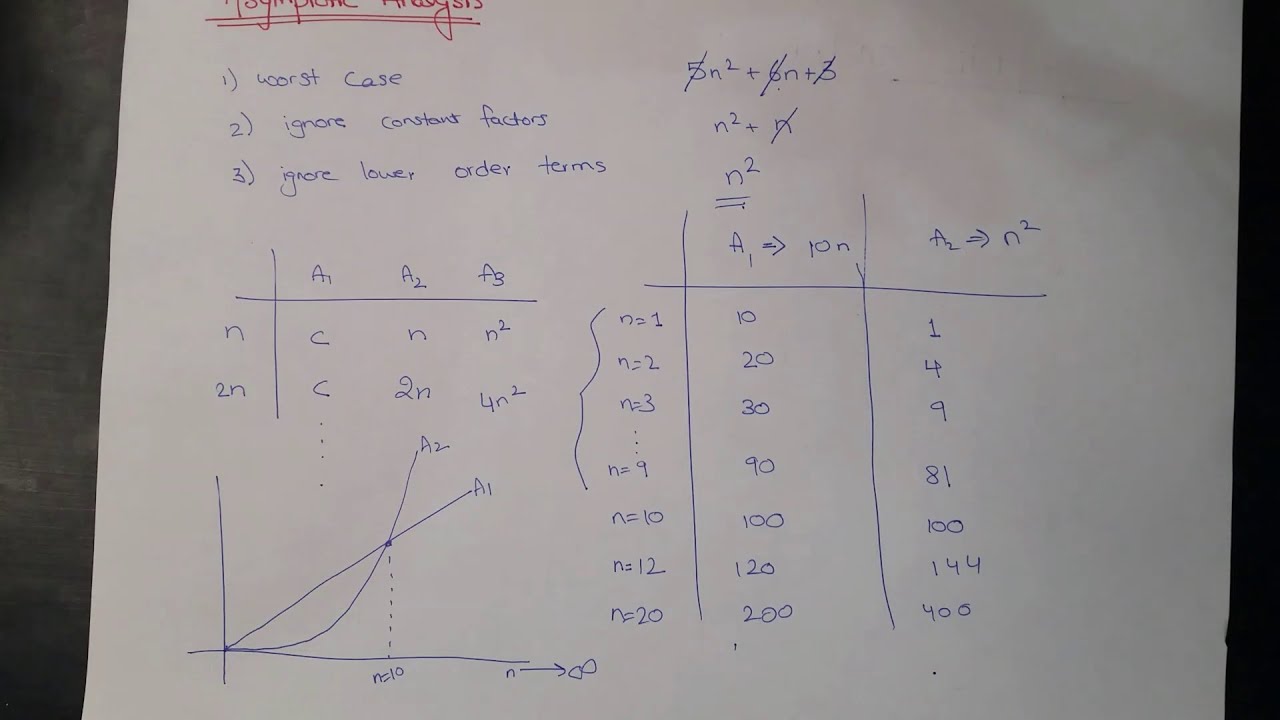 Asymptotic Analysis
1) worst case
2) ignore constant factors
3) ignore lower order terms
5n² + 6n + 3
n² + n
n²
A₁ A₂ A₃
n C n n²
2n C 2n 4n²
A₂
A₁
n=10
n → ∞
A₁ ⇒ 10n A₂ ⇒ n²
n=1 10 1
n=2 20 4
n=3 30 9
n=9 90 81
n=10 100 100
n=12 120 144
n=20 200 400